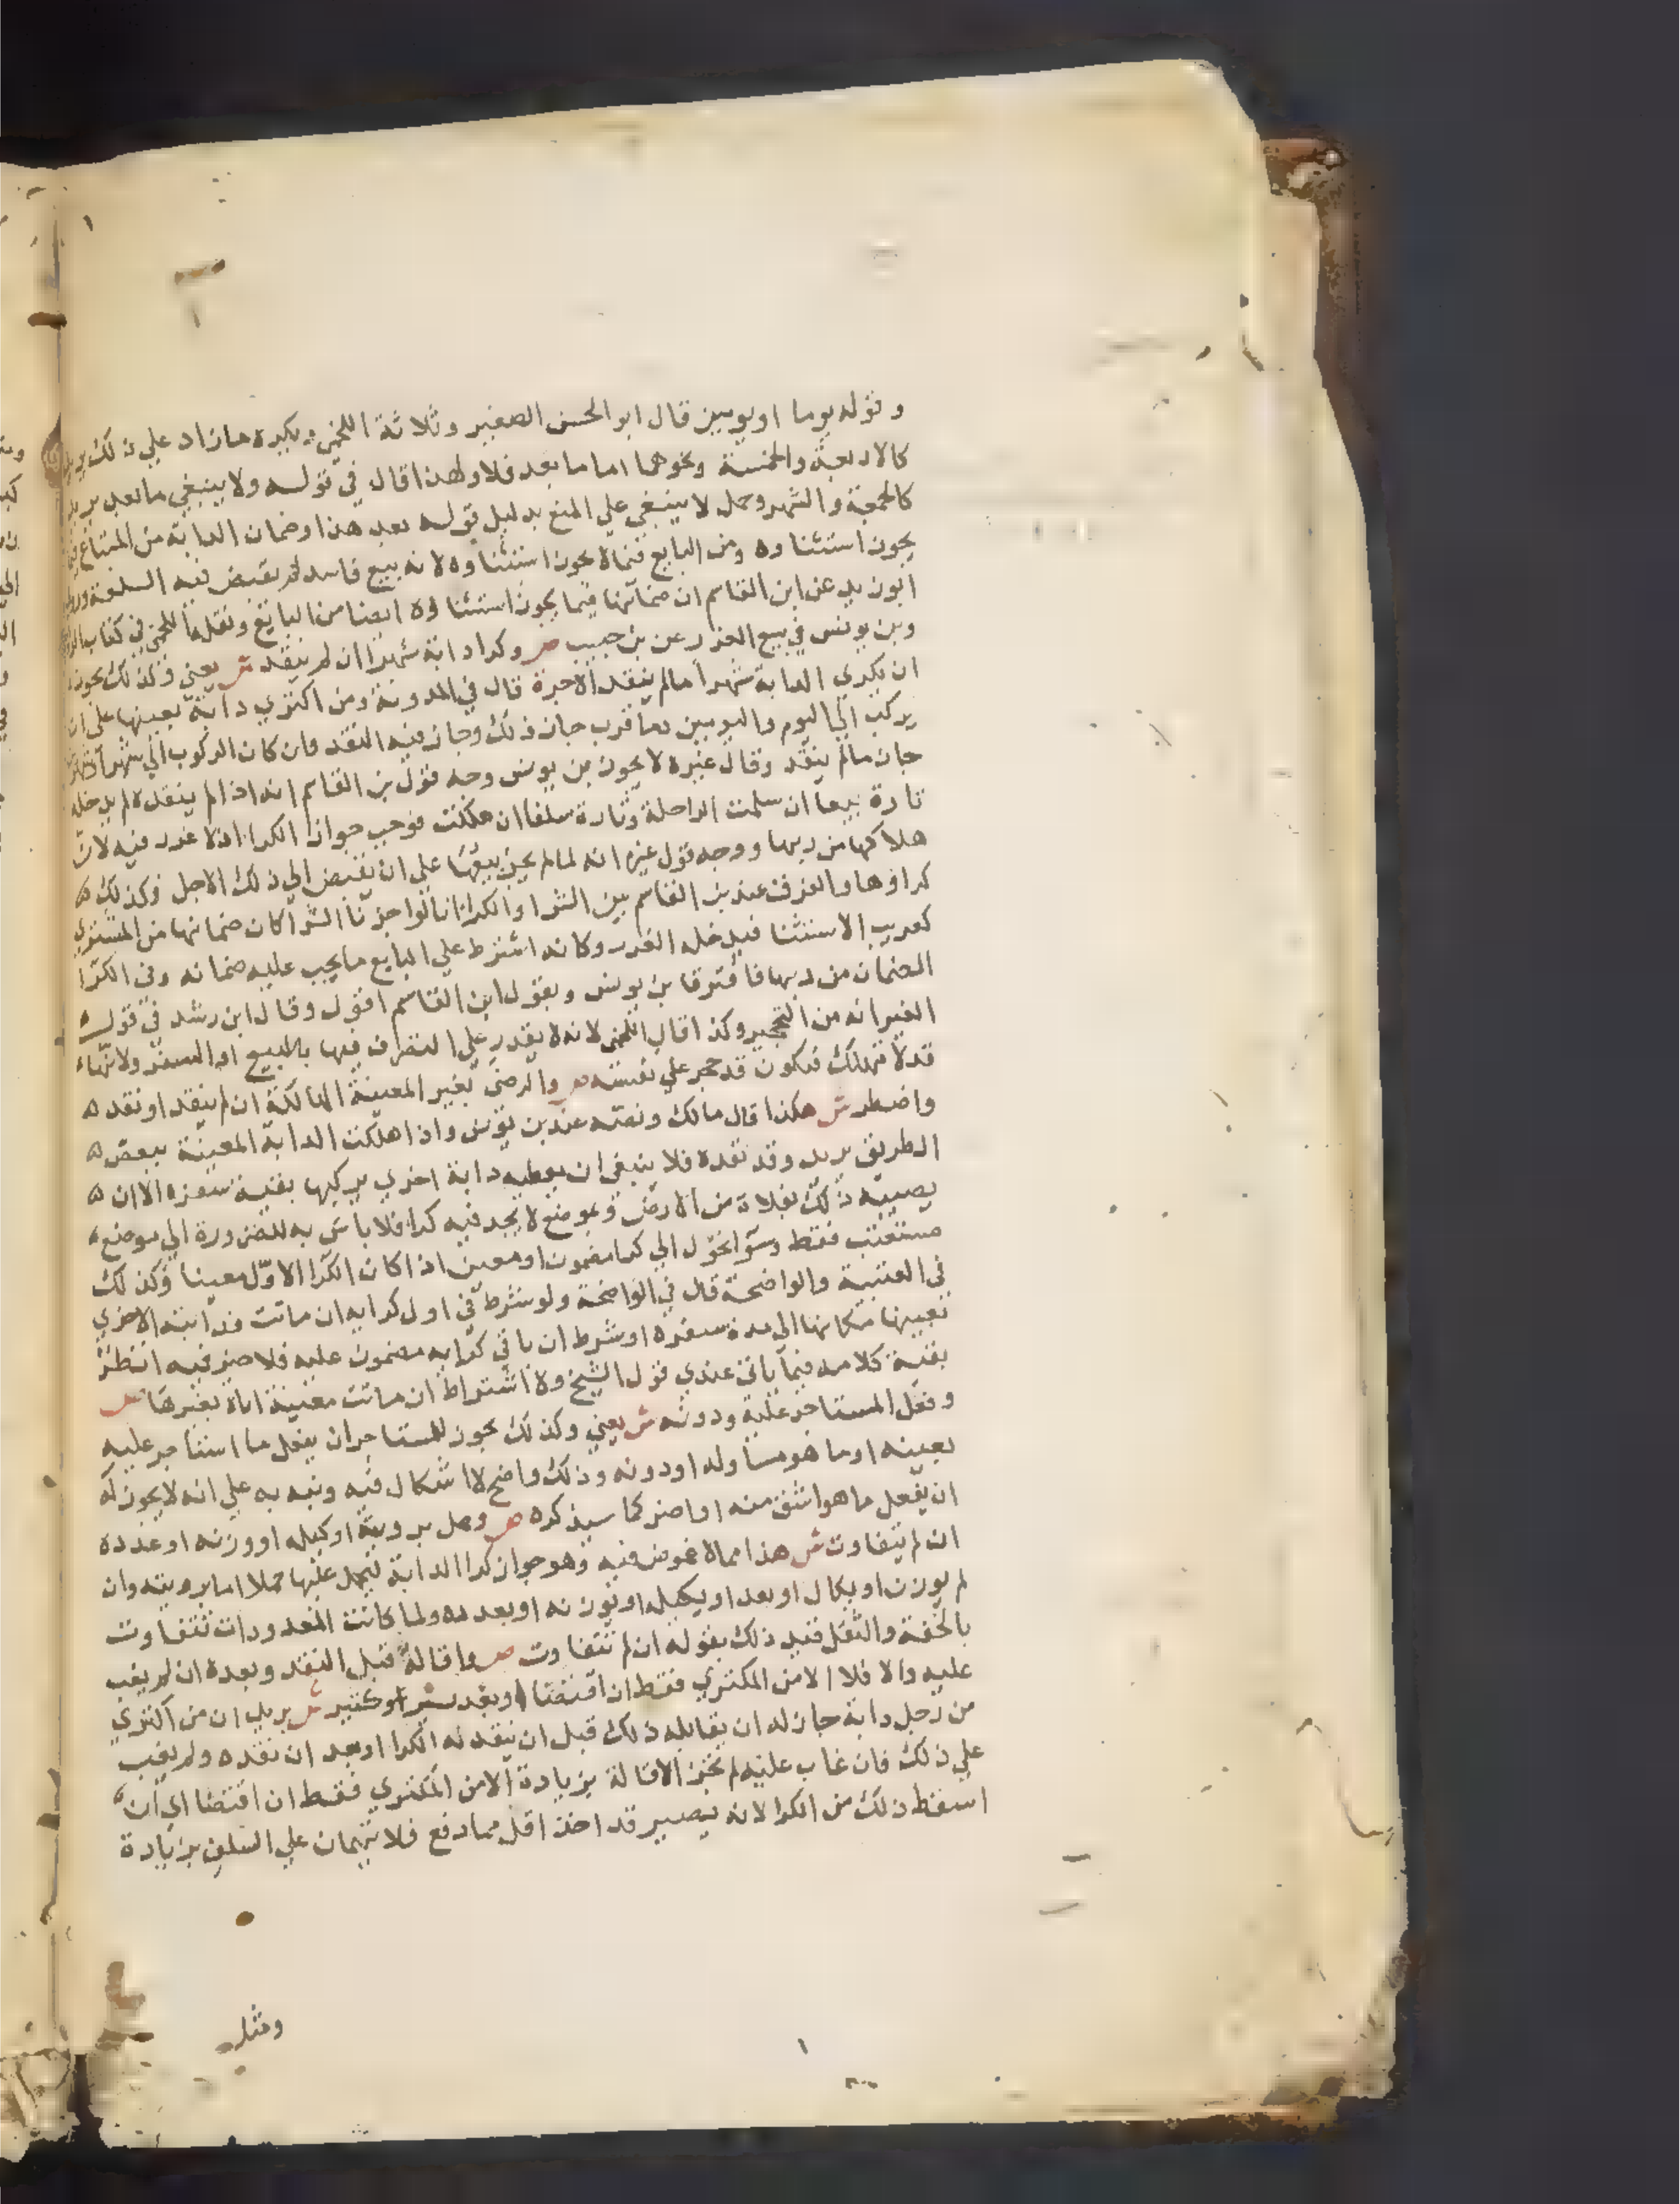 وقوله يوما او يومين قال ابو الحسن الصغير وثلاثة اللخمي ويكره مازاد علي ذلك يريد
كالاربعة والخمسة ونحوهما اما ما بعد فلا ولهذا قال في قوله ولا ينبغي ما بعد يريد
كالجمعة والشهر وحمل لا ينبغي علي المنع بدليل قوله بعد هذا وضمان الدابة من المبتاع فيما
يجوز استثناوه ومن البايع فيما لا يجوز استثناوه لانه بيع فاسد لم يقبض فيه السلعة وروي
ابو زيد عن ابن القاسم ان ضمانها فيما يجوز استثناوه ايضا من البايع ونقله اللخمي في كتاب
وبن يونس في بيع الغرر عن بن حبيب ص وكرا دابة شهرا ان لم ينقد ش يعني وكذلك يجوز
ان يكري الدابة شهرا مالم ينقد الاجرة قال في المدونة ومن اكتري دابة بعينها علي ان
يركب الي اليوم واليومين وما قرب جاز ذلك وجاز فيه النقد فان كان الركوب الي شهر او شهرين
جاز مالم ينقد وقال غيره لا يجوز بن يونس وجه قول بن القاسم انه اذا لم ينقده لم يدخله
تارة بيعا ان سلمت الراحلة وتارة سلفا ان هلكت فوجب جواز الكرا اذ لا غرر فيه لان
هلاكها من ربها ووجه قول غيره انه لما لم يجز بيعها علي ان يقبض الي ذلك الاجل وكذلك ه
كراوها والفرق عند بن القاسم بين الشرا والكرا انا لو اجزنا الشرا كان ضمانها من المشتري
كقريب الاستثنا فيدخله الغرر وكانه اشترط علي البايع ما يجب عليه ضمانه وفي الكرا
الضمان من ربها فافترقا بن يونس وبقول ابن القاسم اقول وقال ابن رشد في قول
الغير انه من التحجير وكذا قال اللخمي لانه لا يقدر علي التصرف فيها بالبيع او السفر ولانها
قد لا تهلك فيكون قد حجر علي نفسه ص والرضي بغير المعينة الهالكة ان لم ينقد او نقد ه
واضطر ش هكذا قال مالك ونصه عند بن يونس واذا هلكت الدابة المعينة ببعض ه
الطريق يريد وقد نقده فلا ينبغي ان يعطيه دابة اخري يركبها بقية سفره الا ان ه
يصيبه ذلك بفلاة من الارض وبموضع لا يجد فيه كرا فلا باس به للضرورة الي موضع
مستعتب فقط وسوا تحول الي كرا مضمون او معين اذا كان الكرا الاول معينا وكذلك
في العتبية والواضحة قال في الواضحة ولو شرط في اول كرايه ان ماتت فدابته الاخري
بعينها مكانها الي مدة سفره او شرط ان باقي كرايه مضمون عليه فلا خير فيه انظر
بقية كلامه فيما ياتي عندي قول الشيخ ولا اشتراط ان ماتت معينة اتاه بغيرها ص
وفعل المستاجر عليه ودونه ش يعني وكذلك يجوز للمستاجر ان يفعل ما استاجر عليه
بعينه او ما هو مساو له او دونه وذلك واضح لا اشكال فيه ونبه به علي انه لا يجوز له
ان يفعل ما هو اشق منه او اضر كما سيذكره ص وحمل برويته او كيله او وزنه او عدده
ان لم يتفاوت ش هذا مما لا غموض فيه وهو جواز كرا الدابة ليحمل عليها حملا اما برويته وان
لم يوزن او يكال او يعد او بكيله او بوزنه او بعدده ولما كانت المعدودات تتفاوت
بالخفة والثقل قيد ذلك بقوله ان لم تتفاوت ص واقالة قبل النقد وبعده ان لم يغب
عليه والا فلا الا من المكتري فقط ان اقتضا او بعد سير او كثير ش يريد ان من اكتري
من رجل دابة جاز له ان يقايله ذلك قبل ان ينقد له الكرا او بعد ان نقده ولم يغب
علي ذلك فان غاب عليه لم تجز الاقالة بزيادة الا من المكتري فقط ان اقتضا اي ان
اسقط ذلك من الكرا لانه يصير قد اخذ اقل مما دفع فلا يتهمان علي السلف بزيادة
ومثله